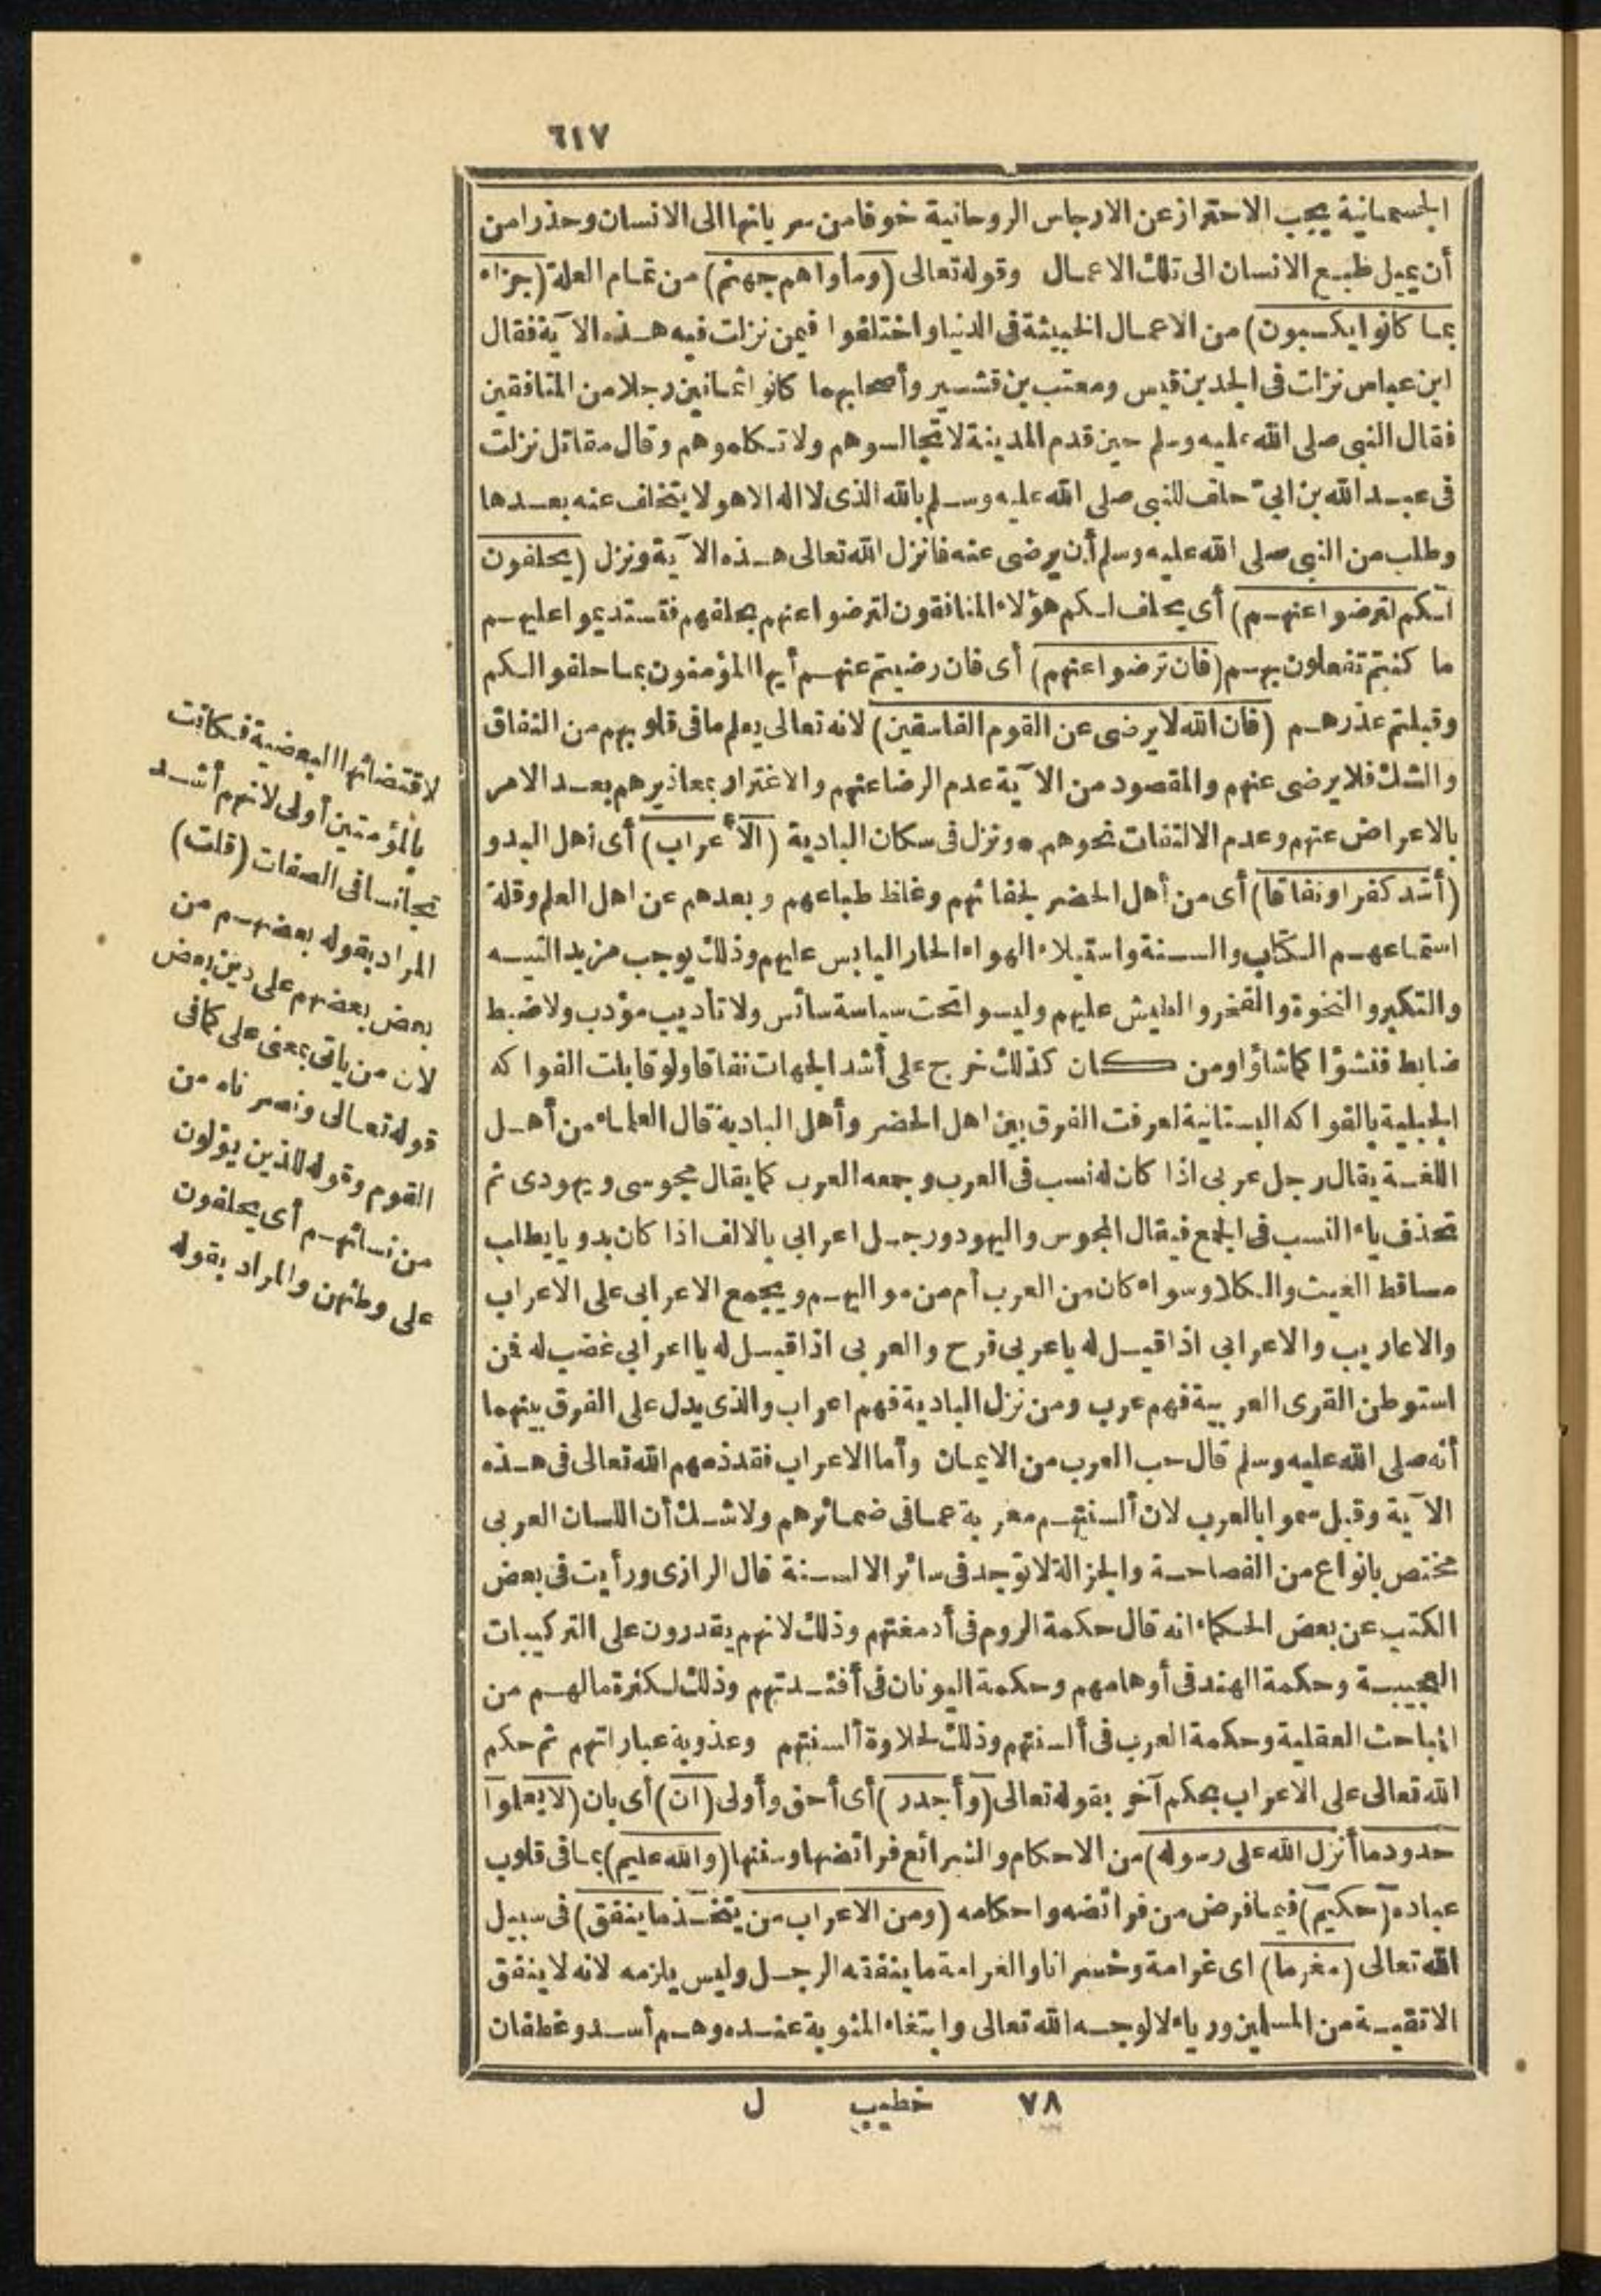 ٦١٧
الجسمانية يجب الاحتراز عن الارجاس الروحانية خوفا من سريانها الى الانسان وحذرا من
أن يميل طبع الانسان الى تلك الاعمال وقوله تعالى (ومأواهم جهنم) من تمام العلة (جزاء
بما كانوا يكسبون) من الاعمال الخبيثة فى الدنيا واختلفوا فيمن نزلت فيه هذه الآية فقال
ابن عباس نزلت فى الجد بن قيس ومعتب بن قشير وأصحابهما كانوا ثمانين رجلا من المنافقين
فقال النبى صلى الله عليه وسلم حين قدم المدينة لا تجالسوهم ولا تكلموهم وقال مقاتل نزلت
فى عبد الله بن ابىّ حلف للنبى صلى الله عليه وسلم بالله الذى لا اله الا هو لا يتخلف عنه بعدها
وطلب من النبى صلى الله عليه وسلم أن يرضى عنه فانزل الله تعالى هذه الآية ونزل (يحلفون
لكم لترضوا عنهم) أى يحلف لكم هؤلاء المنافقون لترضوا عنهم بحلفهم فتستديموا عليهم
ما كنتم تفعلون بهم (فان ترضوا عنهم) أى فان رضيتم عنهم أيها المؤمنون بما حلفوا لكم
وقبلتم عذرهم (فان الله لا يرضى عن القوم الفاسقين) لانه تعالى يعلم ما فى قلوبهم من النفاق
والشك فلا يرضى عنهم والمقصود من الآية عدم الرضا عنهم والاغترار بمعاذيرهم بعد الامر
بالاعراض عنهم وعدم الالتفات نحوهم * ونزل فى سكان البادية (الأعراب) أى أهل البدو
(أشد كفرا ونفاقا) أى من أهل الحضر لجفائهم وغلظ طباعهم وبعدهم عن اهل العلم وقلة
استماعهم الكتاب والسنة واستيلاء الهواء الحار اليابس عليهم وذلك يوجب مزيد التيه
والتكبر والنخوة والفخر والطيش عليهم وليسوا تحت سياسة سائس ولا تأديب مؤدب ولا ضبط
ضابط فنشؤا كما شاؤا ومن كان كذلك خرج على أشد الجهات نفاقا ولو قابلت الفواكه
الجبلية بالفواكه البستانية لعرفت الفرق بين اهل الحضر وأهل البادية قال العلماء من أهل
اللغة يقال رجل عربى اذا كان له نسب فى العرب وجمعه العرب كما يقال مجوسى ويهودى ثم
تحذف ياء النسب فى الجمع فيقال المجوس واليهود ورجل اعرابى بالالف اذا كان بدويا يطلب
مساقط الغيث والكلا وسواء كان من العرب أم من مواليهم ويجمع الاعرابى على الاعراب
والاعاريب والاعرابى اذا قيل له يا عربى فرح والعربى اذا قيل له يا اعرابى غضب له فمن
استوطن القرى العربية فهم عرب ومن نزل البادية فهم اعراب والذى يدل على الفرق بينهما
أنه صلى الله عليه وسلم قال حب العرب من الايمان وأما الاعراب فقد ذمهم الله تعالى فى هذه
الآية وقيل سموا بالعرب لان ألسنتهم معربة عما فى ضمائرهم ولا شك أن اللسان العربى
مختص بانواع من الفصاحة والجزالة لا توجد فى سائر الالسنة قال الرازى ورأيت فى بعض
الكتب عن بعض الحكماء انه قال حكمة الروم فى أدمغتهم وذلك لانهم يقدرون على التركيبات
العجيبة وحكمة الهند فى أوهامهم وحكمة اليونان فى أفئدتهم وذلك لكثرة ما لهم من
المباحث العقلية وحكمة العرب فى ألسنتهم وذلك لحلاوة ألسنتهم وعذوبة عباراتهم ثم حكم
الله تعالى على الاعراب بحكم آخر بقوله تعالى (وأجدر) أى أحق وأولى (ان) أى بان (لا يعلموا
حدود ما أنزل الله على رسوله) من الاحكام والشرائع فرائضها وسننها (والله عليم) بما فى قلوب
عباده (حكيم) فيما فرض من فرائضه واحكامه (ومن الاعراب من يتخذ ما ينفق) فى سبيل
الله تعالى (مغرما) اى غرامة وخسرانا والغرامة ما ينفقه الرجل وليس يلزمه لانه لا ينفق
الا تقية من المسلمين ورياء لا لوجه الله تعالى وابتغاء المثوبة عنده وهم أسد وغطفان
لاقتضائها البعضية فكانت
بالمؤمنين أولى لانهم أشد
تجانسا فى الصفات (قلت)
المراد بقوله بعضهم من
بعض بعضهم على دين بعض
لان من ياتى بمعنى على كما فى
قوله تعالى ونصرناه من
القوم وقوله للذين يؤلون
من نسائهم أى يحلفون
على وطئهن والمراد بقوله
٧٨ خطيب ل